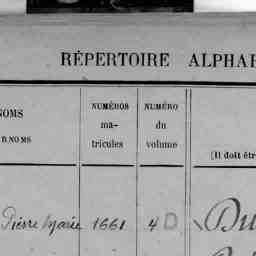 RÉPERTOIRE ALPHA
NOMS
RNOMS
NUMÉROS
ma-
tricules
NUMÉRO
du
volume
(Il doit êtr
Pierre Marie 1661 4 D Du